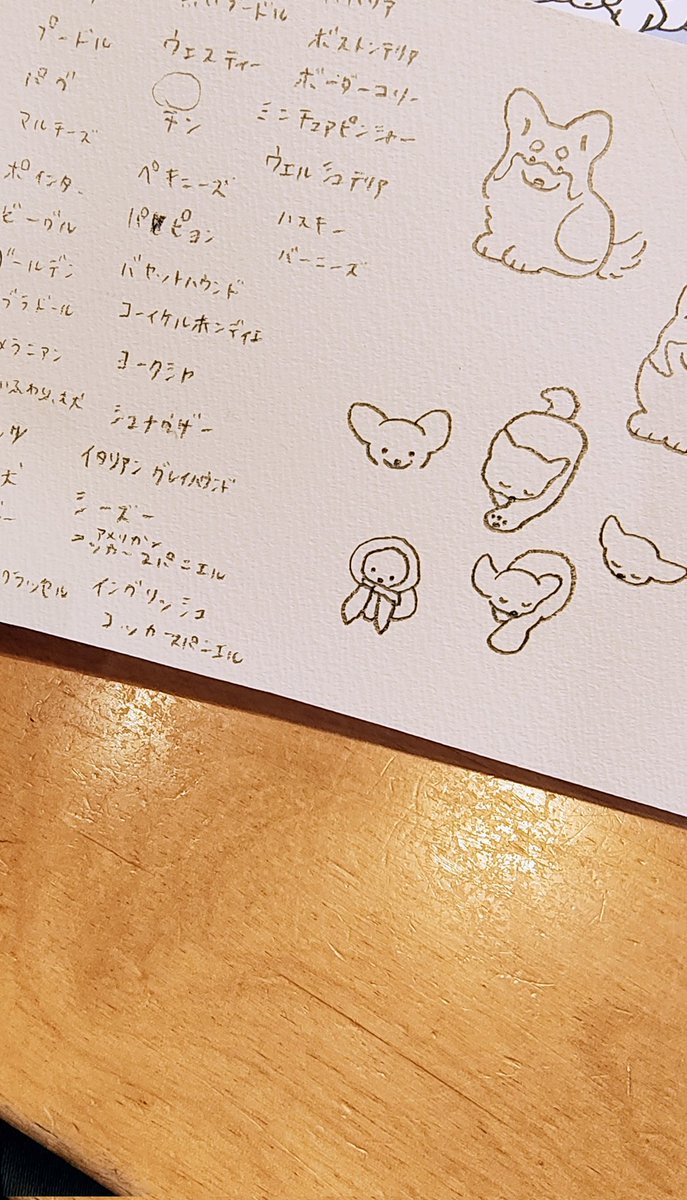 プードル
パグ
マルチーズ
ポインター
ビーグル
ゴールデン
ブラドール
メラニアン
ウェスティー
チン
ペキニーズ
パピヨン
バセットハウンド
コーイケルホンディエ
ヨークシャ
シュナウザー
イタリアングレイハウンド
シーズー
アメリカン
コッカースパニエル
イングリッシュ
コッカースパニエル
ボストンテリア
ボーダーコリー
ミニチュアピンシャー
ウェルシュテリア
ハスキー
バーニーズ